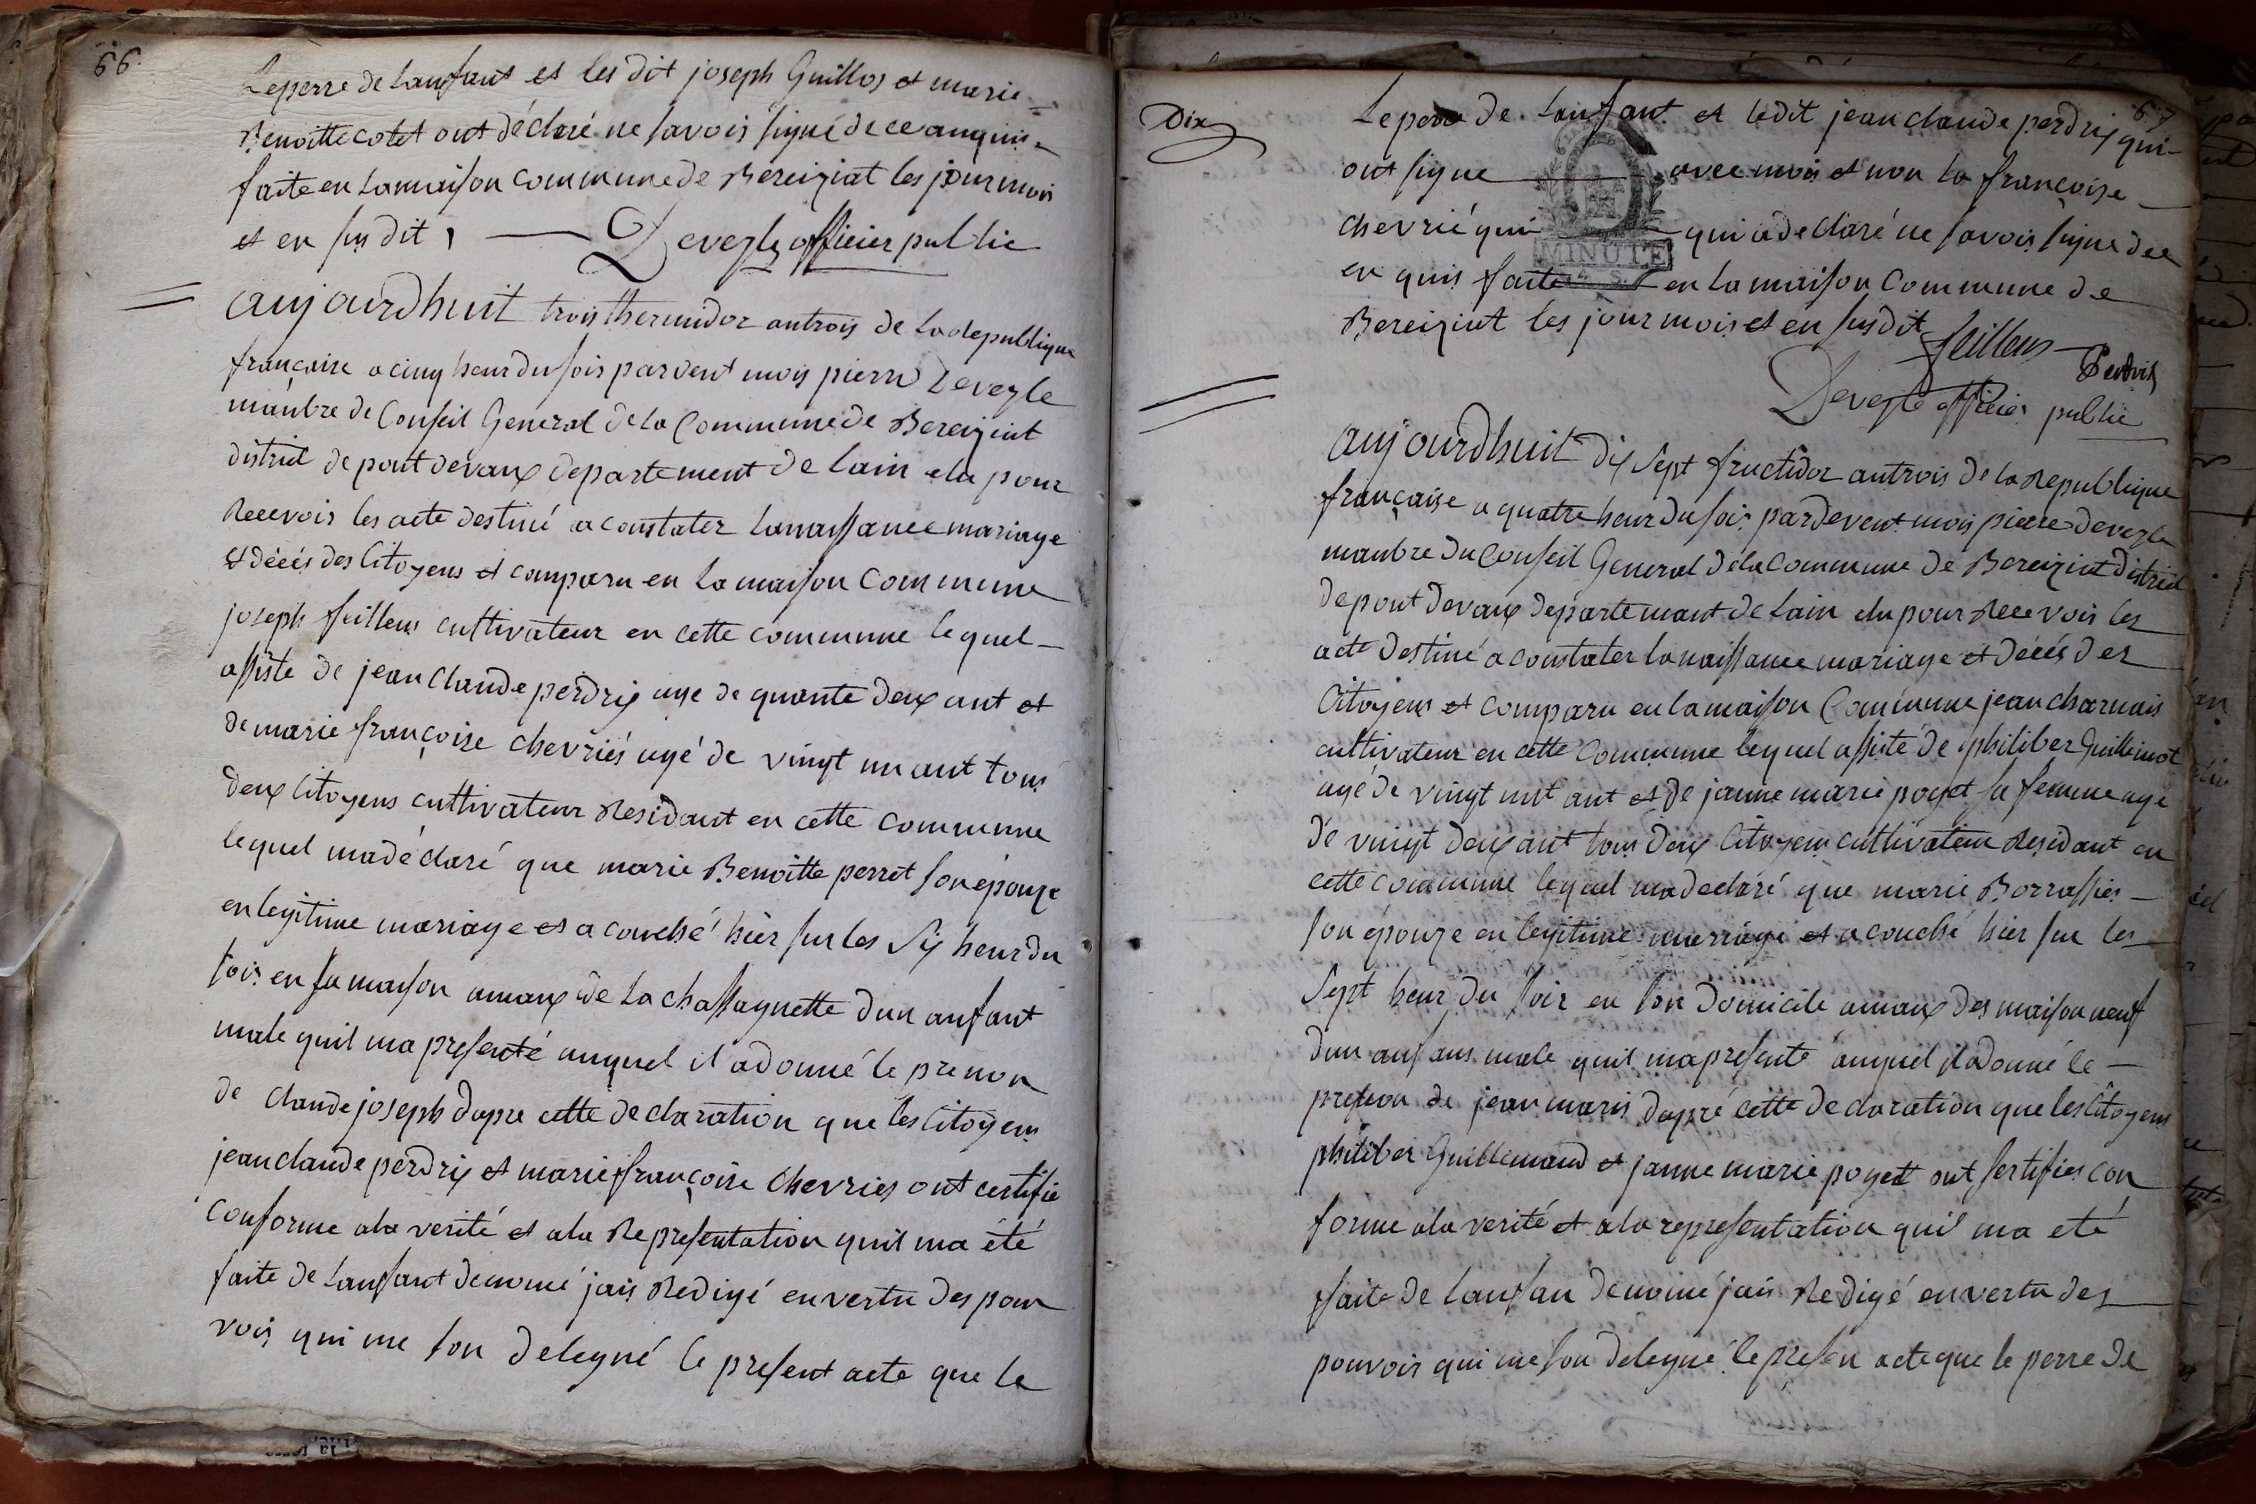 66
Leperre de Lanfant et les dit joseph Guillos et marie
Benoitte colet ont déclaré ne savois signé de ce anquis
faite en Lamaison commune de Bereiziat les jour mois
et en susdit, Devegle officier public
aujourdhuit trois thermidor antrois de La Republique
françaire a cinq heur du sois parvent mois pierre Devegle
manbre de Conseil General de La Commune de Bereiziat
district de pont devaux departement de Lain elu pour
Recevois les acte destiné a constater Lanaissance mariage
et décés des Citoyens et comparu en La maison Commune
joseph feillens cultivateur en cette commune lequel
assiste de jean Claude perdrix age de quante deux ant et
de marie françoise chevriés agé de vingt un ant tous
deux Citoyens cultivateur Residant en cette commune
lequel madéclaré que marie Benoitte perret son épouze
en legitime mariage et a couché hier sur les Six heur du
sois en sa maison amaux de La chassagnette dun anfant
male quil ma presenté auquel il a donné le prenon
de claude joseph dapre cette declaration que les Citoyens
jean claude perdrix et marie françoise chevries ont certifié
conforme ala verité et ala Representation quil ma été
faite de Lanfant denomé jais Redigé en vertu des pou
vois qui me son delegué le present acte que le
67
Dix
Le pere de Lanfant et ledit jean claude perdrix qui
ont signe avec mois et non la françoise
chevrié qui qui a declaré ne savois signe de ce
en quis faite en La maison Commune de
MINUTE
Bereiziat les jour mois et en susdit
feillens
Perdrix
Devegle officier public
aujourdhuit dix Sept fructidor antrois de la Republique
française a quatre heur du sois pardevent mois pierre devegle
manbre du Conseil General de la Commune de Bereiziat district
de pont devaux departemant de Lain elu pour Recevois les
acte destiné a constater lanaissance mariage et décés des
Citoyens et comparu en la maison Commune jean charnais
cultivateur en cette Commune lequel assisté de philiber Guillemot
agé de vingt ant et de janne marie poget sa femme age
de vingt deux ant tous deux Citoyens cultivateur Residant en
cette commune lequel madeclaré que marie Borrassies
son épouze en legitime marriage et a couché hier sur les
Sept heur du soir en son domicile amaux des maison neuf
dun anfans male quil ma presente auquel il a donné le
prenon de jean maris dapré cette declaration que les Citoyens
philiber Guillemaud et janne marie poget ont sertifies con
forme ala verité et ala representation quil ma eté
faite de Lanfan denomé jais Redigé en vertu des
pouvois qui me son delegué le presen acte que le perre de